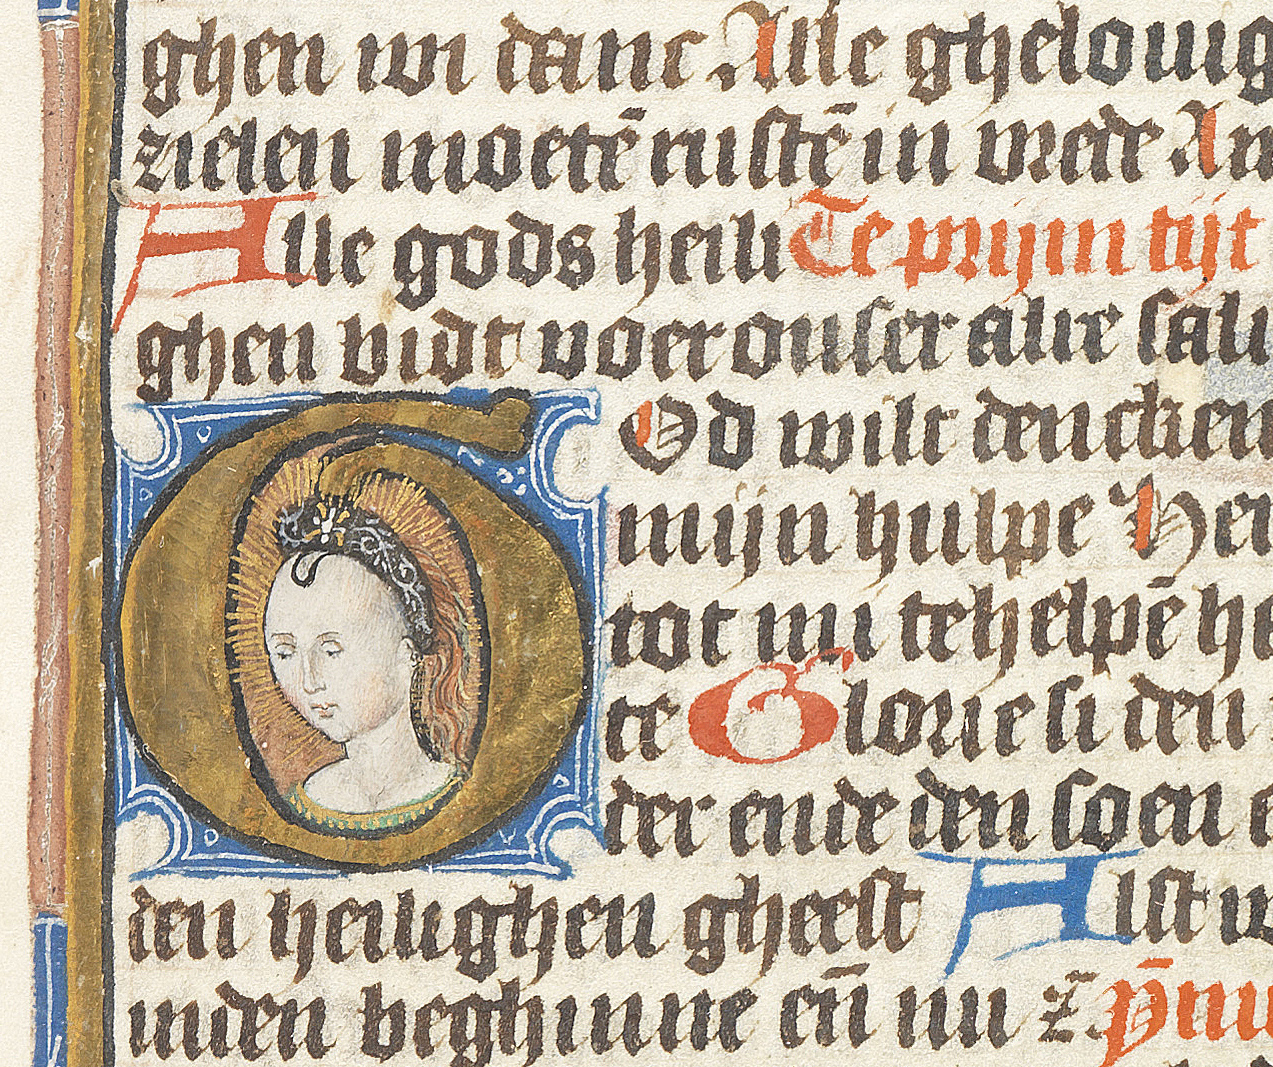 ghen wi danc Alle ghelouig
zielen moetē rustē in vrede Am
Alle gods heili Te prijm tijt
ghen bidt voer onser alre sali
God wilt dencken
mijn hulpe Her
tot mi te helpē he
te Glorie si den
der ende den soen e
den heilighen gheest Alst w
inden beghinne eñ nu Z p̄nu